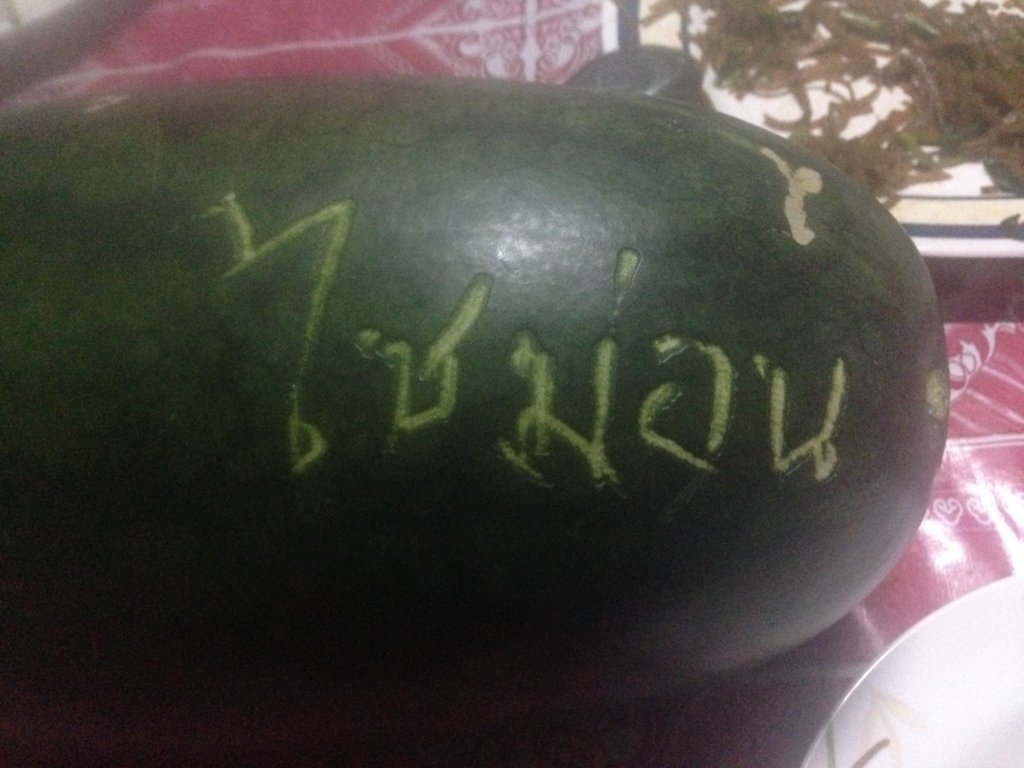 ไซม่อน